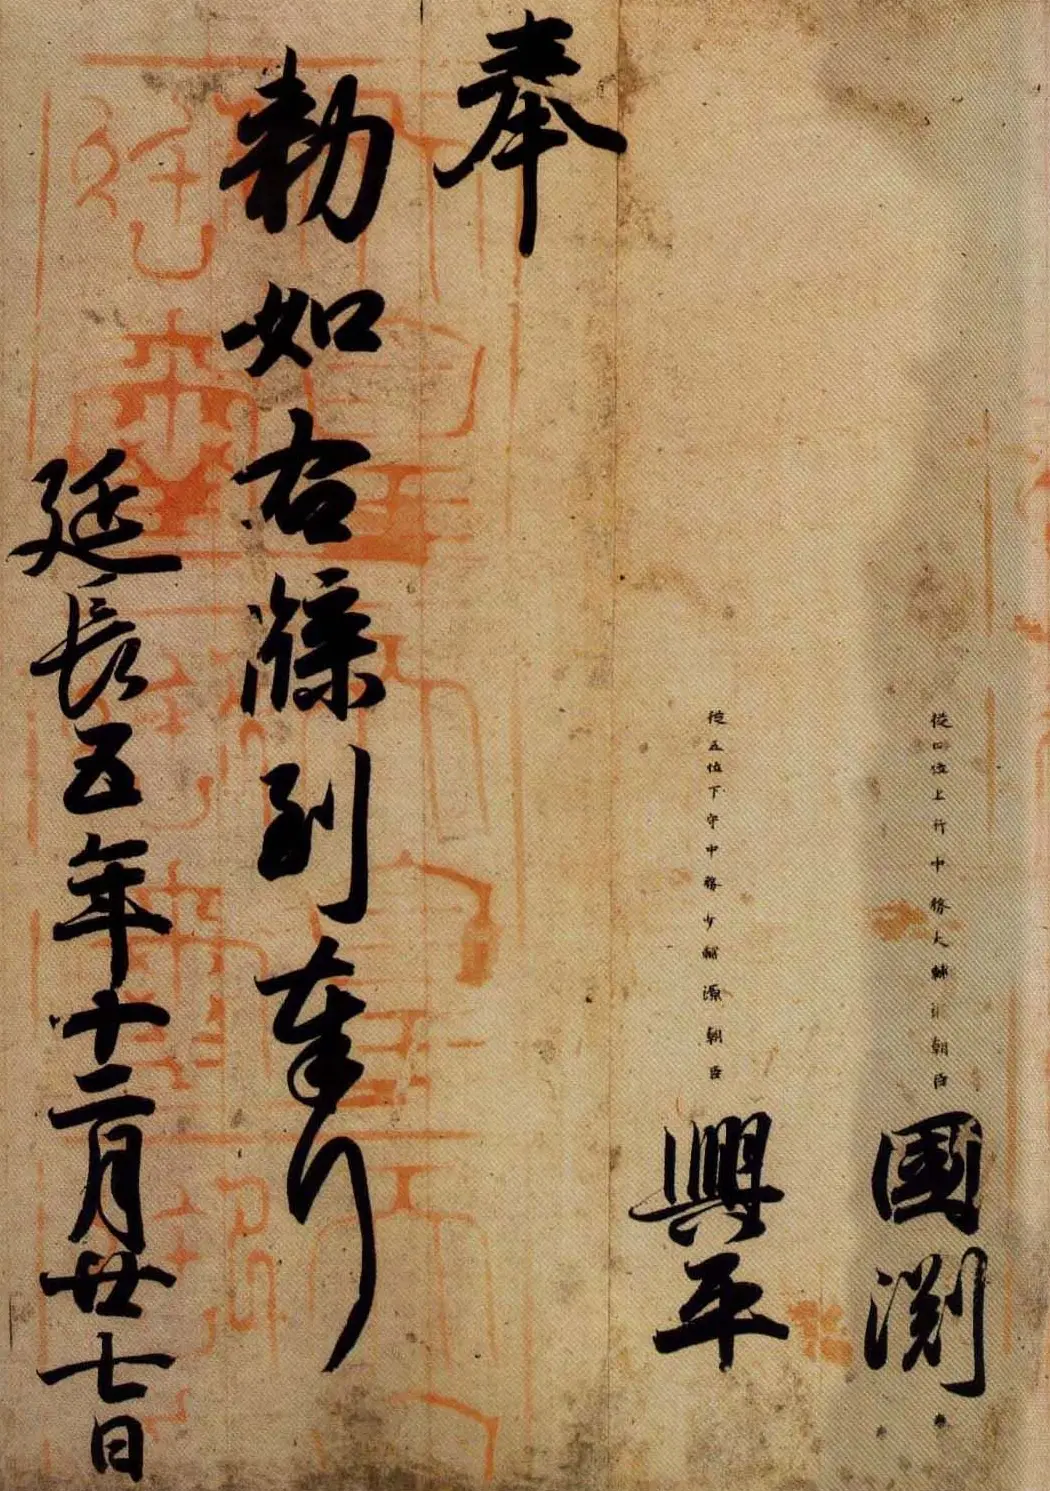 從四位上行中務大輔源朝臣國淵
從五位下守中務少輔源朝臣興平
奉
勅如右牒到奉行
延長五年十二月廿七日